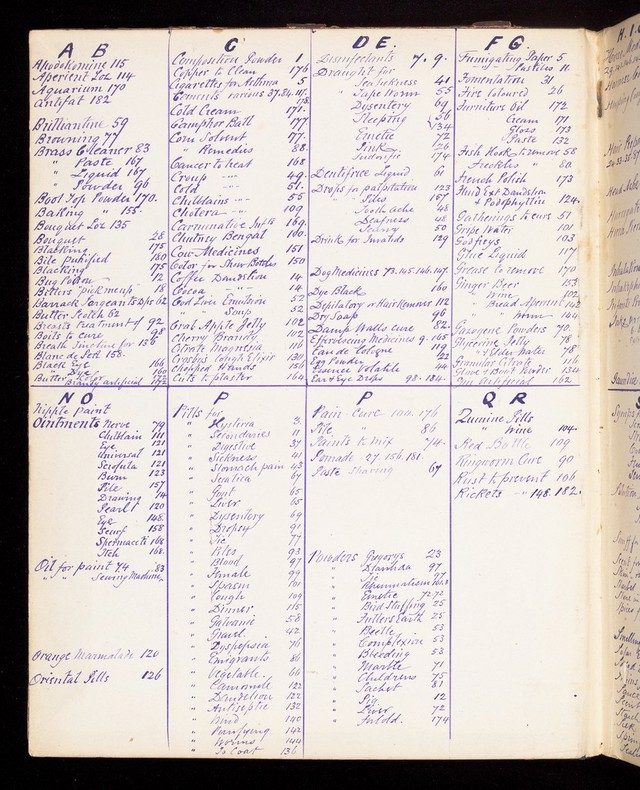 A B
Apodokomine 115
Aperient Loz 114
Aquarium 170
Antifat 182
Brilliantine 59
Browning 77
Brass Cleaner 83
" Paste 167
" Liquid 167
" Powder 96
Boot Top Powder 170.
Baking " 155.
Bouquet Loz 135
Bouquet 28
Blacking 175
Bile purified 180
Blacking 175
Bug Poison 12
Bitters "pick me up" 18
Barrack Sergeants Dps 62
Butter Scotch 62
Breasts treatment of 92
Boils to cure 98
Breath Tincture for 136
Blanc de Perl 158.
Black Eye 166
" Dye 160
Butter Color
Brandy artificial 172
C
Composition Powder 1
Copper to Clean 176
Cigarettes for Asthma 5
Cements various 37.84.111.
178.
Cold Cream 171.
Camphor Ball 177
Corn Solvent 177.
" Remedies 88.
Cancer to heat 168
Croup 49.
Cold 51.
Chilblains 55
Cholera 109
Carminative Infts 169.
Chutney Bengal 160.
Cow Medicines 151
Color for Show Bottles 150
Coffee Dandelion 14
Cocoa " 14
Cod Liver Emulsion 52
" " Soup 52
Crab Apple Jelly 102
Cherry Brandy 102
Citrate Magnesia 116
Crosbys Cough Elixir 130
Chapped Hands 156
Cuts to plaster 164
DE.
Disinfectants 7.9.
Draught for
Sea Sickness 41
Tape Worm 55
Dysentery 69
Sleeping 56
134
Emetic 72
Pink 26
Sudorific 174
Dentifrice Liquid 61
Drops for palpitation 123
" Piles 167
" Tooth Ache 48
" Deafness 48
" Scurvy 50
Drink for Invalids 129
Dog Medicines 73.145.146.147.
Dye Black 160
Depilatory or Hair Remover 112
Dry Soap 96
Damp Walls cure 82.
Effervescing Medicines 9.165
Eau de Cologne 119
Egg Powder 22
Essence Volatile 44
Ear & Eye Drops 98.184.
FG.
Fumigating Paper 5
" Pastiles 11.
Fomentation 31
Fire Coloured 26
Furniture Oil 172
Cream 171
Gloss 173
Paste 132
Fish Hook to remove 58
Freckles " 80.
French Polish 173
Fluid Ext Dandelion
& Podophyllin 124.
Gatherings to cure 51
Gripe Water 101
Godfreys 103
Glue Liquid 117
Grease to remove 170
Ginger Beer 153
" Wine 102
" Bead Aperient 142
" " Worm 144
Gazogene Powders 70.
Glycerine Jelly 78
" & Elder Water 78
Granular Citrate 116
Glove & Boot Powder 134
Gin Artificial 162
NO
Nipple paint
Ointments Nerve 79
Chilblain 111
Eye 121
Universal 121
Scrofula 121
Burn 123
Pile 157
Drawing 14
Pearl 120
Eye 148
Scurf 158
Spermaceti 168
Itch 168.
Oil for paint 74 83
" " Sewing Machine
Orange Marmalade 120
Oriental Pills 126
P
Pills for
" Hysteria 3.
" Secondaries 11
" Digestive 37
" Sickness 41
" Stomach pain 43
" Sciatica 67
" Gout 65
" Liver 65
" Dysentery 69
" Dropsy 91
" Tic 77
" Piles 93
" Blood 97
" Female 99
" Spasm 101
" Cough 109
" Dinner 115
" Galvanic 58
" Gravel 42
" Dyspepsia 76
" Emigrants 86
" Vegetable 66
" Camomile 122
" Dandelion 122
" Antiseptic 132
" Wind 140
" Purifying 142
" Worms 144
" To Coat 136
P
Pain Cure 100.176
Pile " 86
Paints to mix 74.
Pomade 27.156.181.
Paste Shaving 67
Powders Gregorys 23
" Diarrhoea 97
" Tic 97
" Rheumatism
" Emetic 72
" Bird Stuffing 25
" Fullers Earth 25
" Beetle 53
" Complexion 53
" Bleeding 53
" Marble 71
" Childrens 75
" Sachet 81
" Pig 12
" Liver 72
" Infold. 174
QR
Quinine Pills
" Wine 104.
Red Bottle 109
Ringworm Cure 90
Rust to prevent 106
Rickets " 148.182.